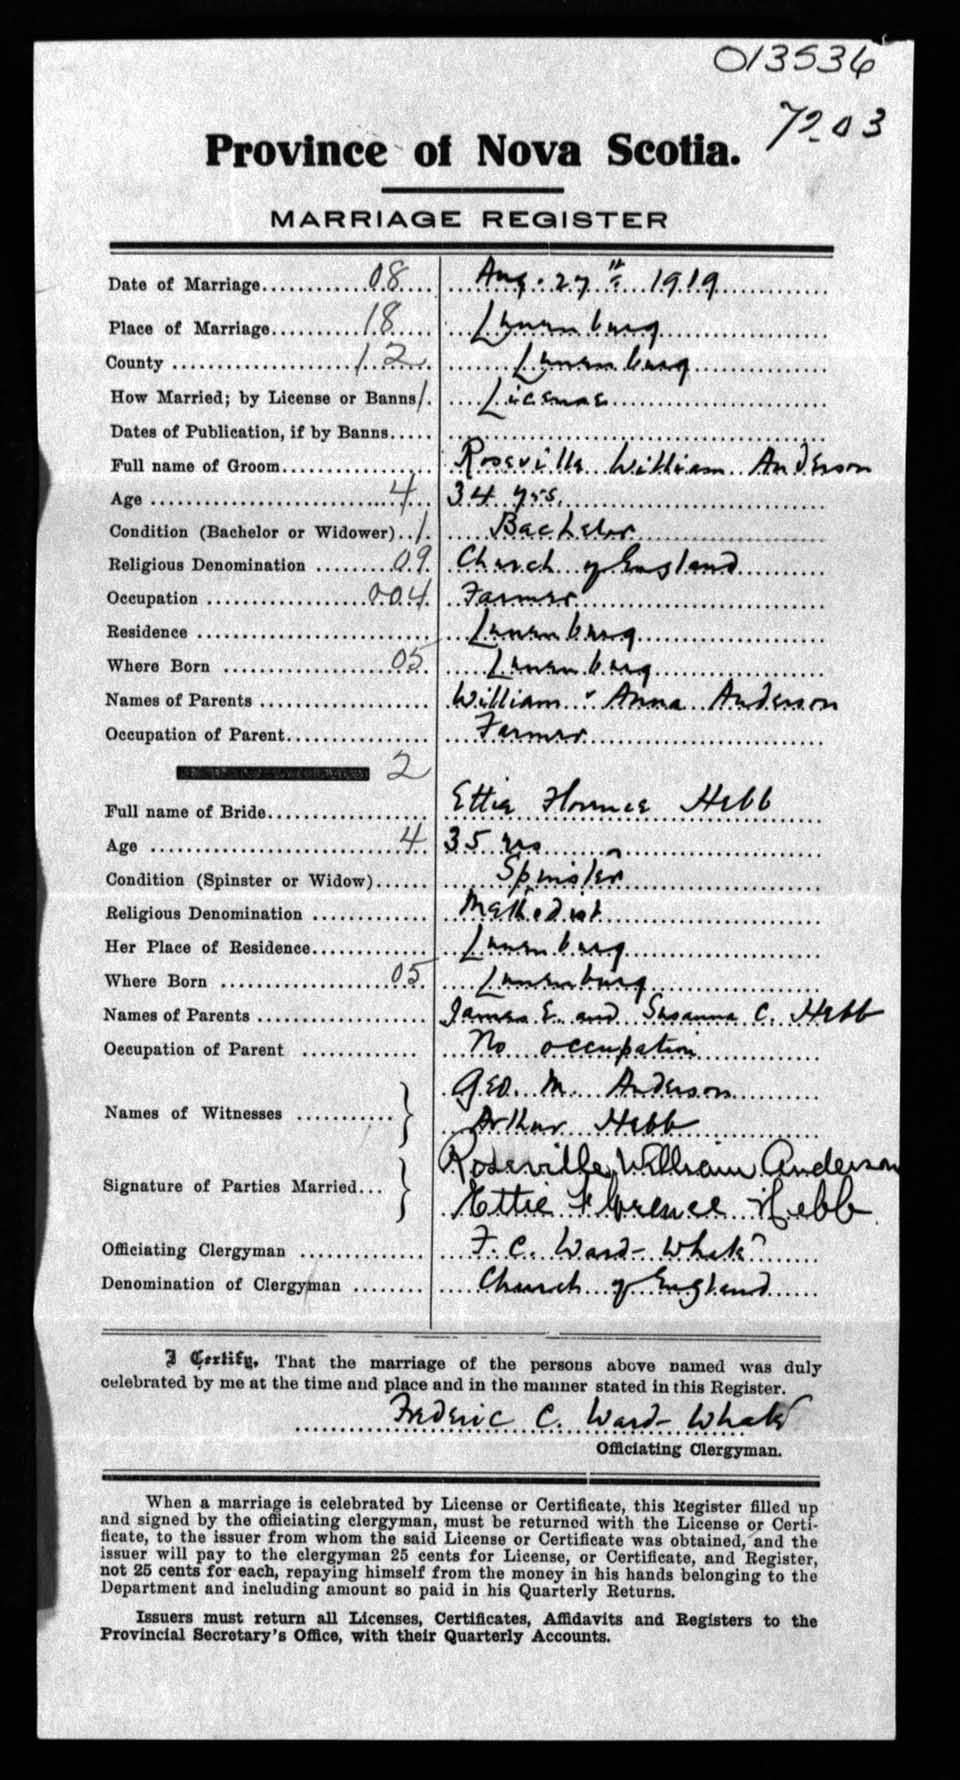 013536
7203
Province of Nova Scotia.
MARRIAGE REGISTER
Date of Marriage 08 Aug. 27th 1919
Place of Marriage 18 Lunenburg
County 12 Lunenburg
How Married; by License or Banns 1 License
Dates of Publication, if by Banns
Full name of Groom Roseville William Anderson
Age 4 34 yrs.
Condition (Bachelor or Widower) 1 Bachelor
Religious Denomination 09 Church of England
Occupation 004 Farmer
Residence Lunenburg
Where Born 05 Lunenburg
Names of Parents William & Anna Anderson
Occupation of Parent Farmer
2
Full name of Bride Ettie Florence Hebb
Age 4 35 yrs
Condition (Spinster or Widow) Spinster
Religious Denomination Methodist
Her Place of Residence Lunenburg
Where Born 05 Lunenburg
Names of Parents James E. and Susanna C. Hebb
Occupation of Parent No occupation
Geo. M. Anderson
Names of Witnesses
Arthur Hebb
Roseville William Anderson
Signature of Parties Married...
Ettie Florence Hebb
Officiating Clergyman F. C. Ward-Whate
Denomination of Clergyman Church of England
I Certify, That the marriage of the persons above named was duly
celebrated by me at the time and place and in the manner stated in this Register.
Frederic C. Ward-Whate
Officiating Clergyman.
When a marriage is celebrated by License or Certificate, this Register filled up
and signed by the officiating clergyman, must be returned with the License or Certi-
ficate, to the issuer from whom the said License or Certificate was obtained, and the
issuer will pay to the clergyman 25 cents for License, or Certificate, and Register,
not 25 cents for each, repaying himself from the money in his hands belonging to the
Department and including amount so paid in his Quarterly Returns.
Issuers must return all Licenses, Certificates, Affidavits and Registers to the
Provincial Secretary's Office, with their Quarterly Accounts.